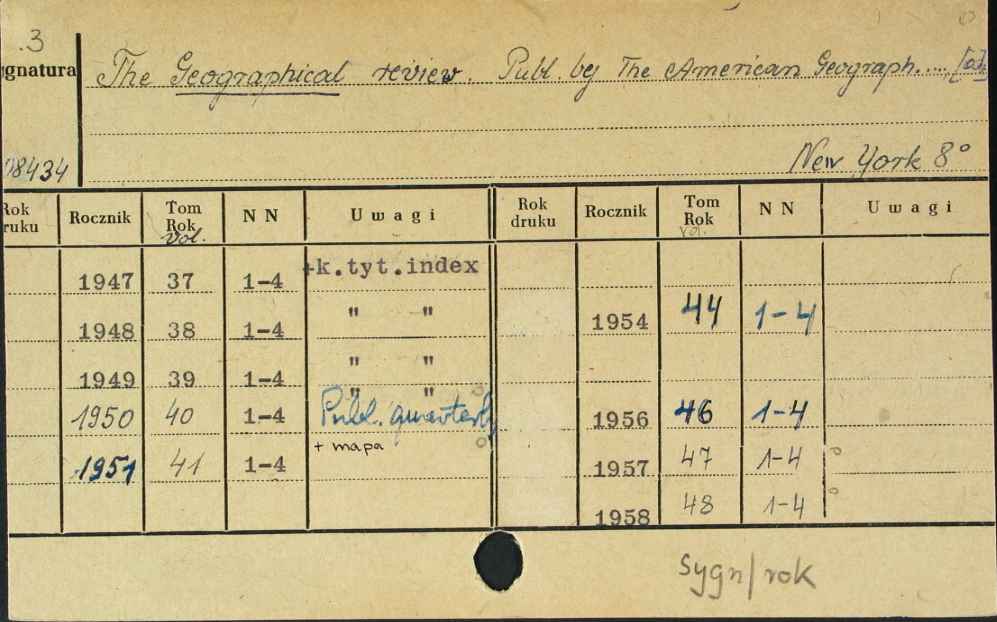 .3
gnatura
The Geographical review. Publ. by The American Geograph....
08434
New York 8°
Rok druku Rocznik Tom Rok vol. N N Uwagi Rok druku Rocznik Tom Rok vol. N N Uwagi
1947 37 1-4 +k.tyt.index
1948 38 1-4 " " 1954 44 1-4
1949 39 1-4 " "
" "
1950 40 1-4 Publ. quarterly 1956 46 1-4
1951 41 1-4 + mapa 1957 47 1-4
1958 48 1-4
Sygn/rok